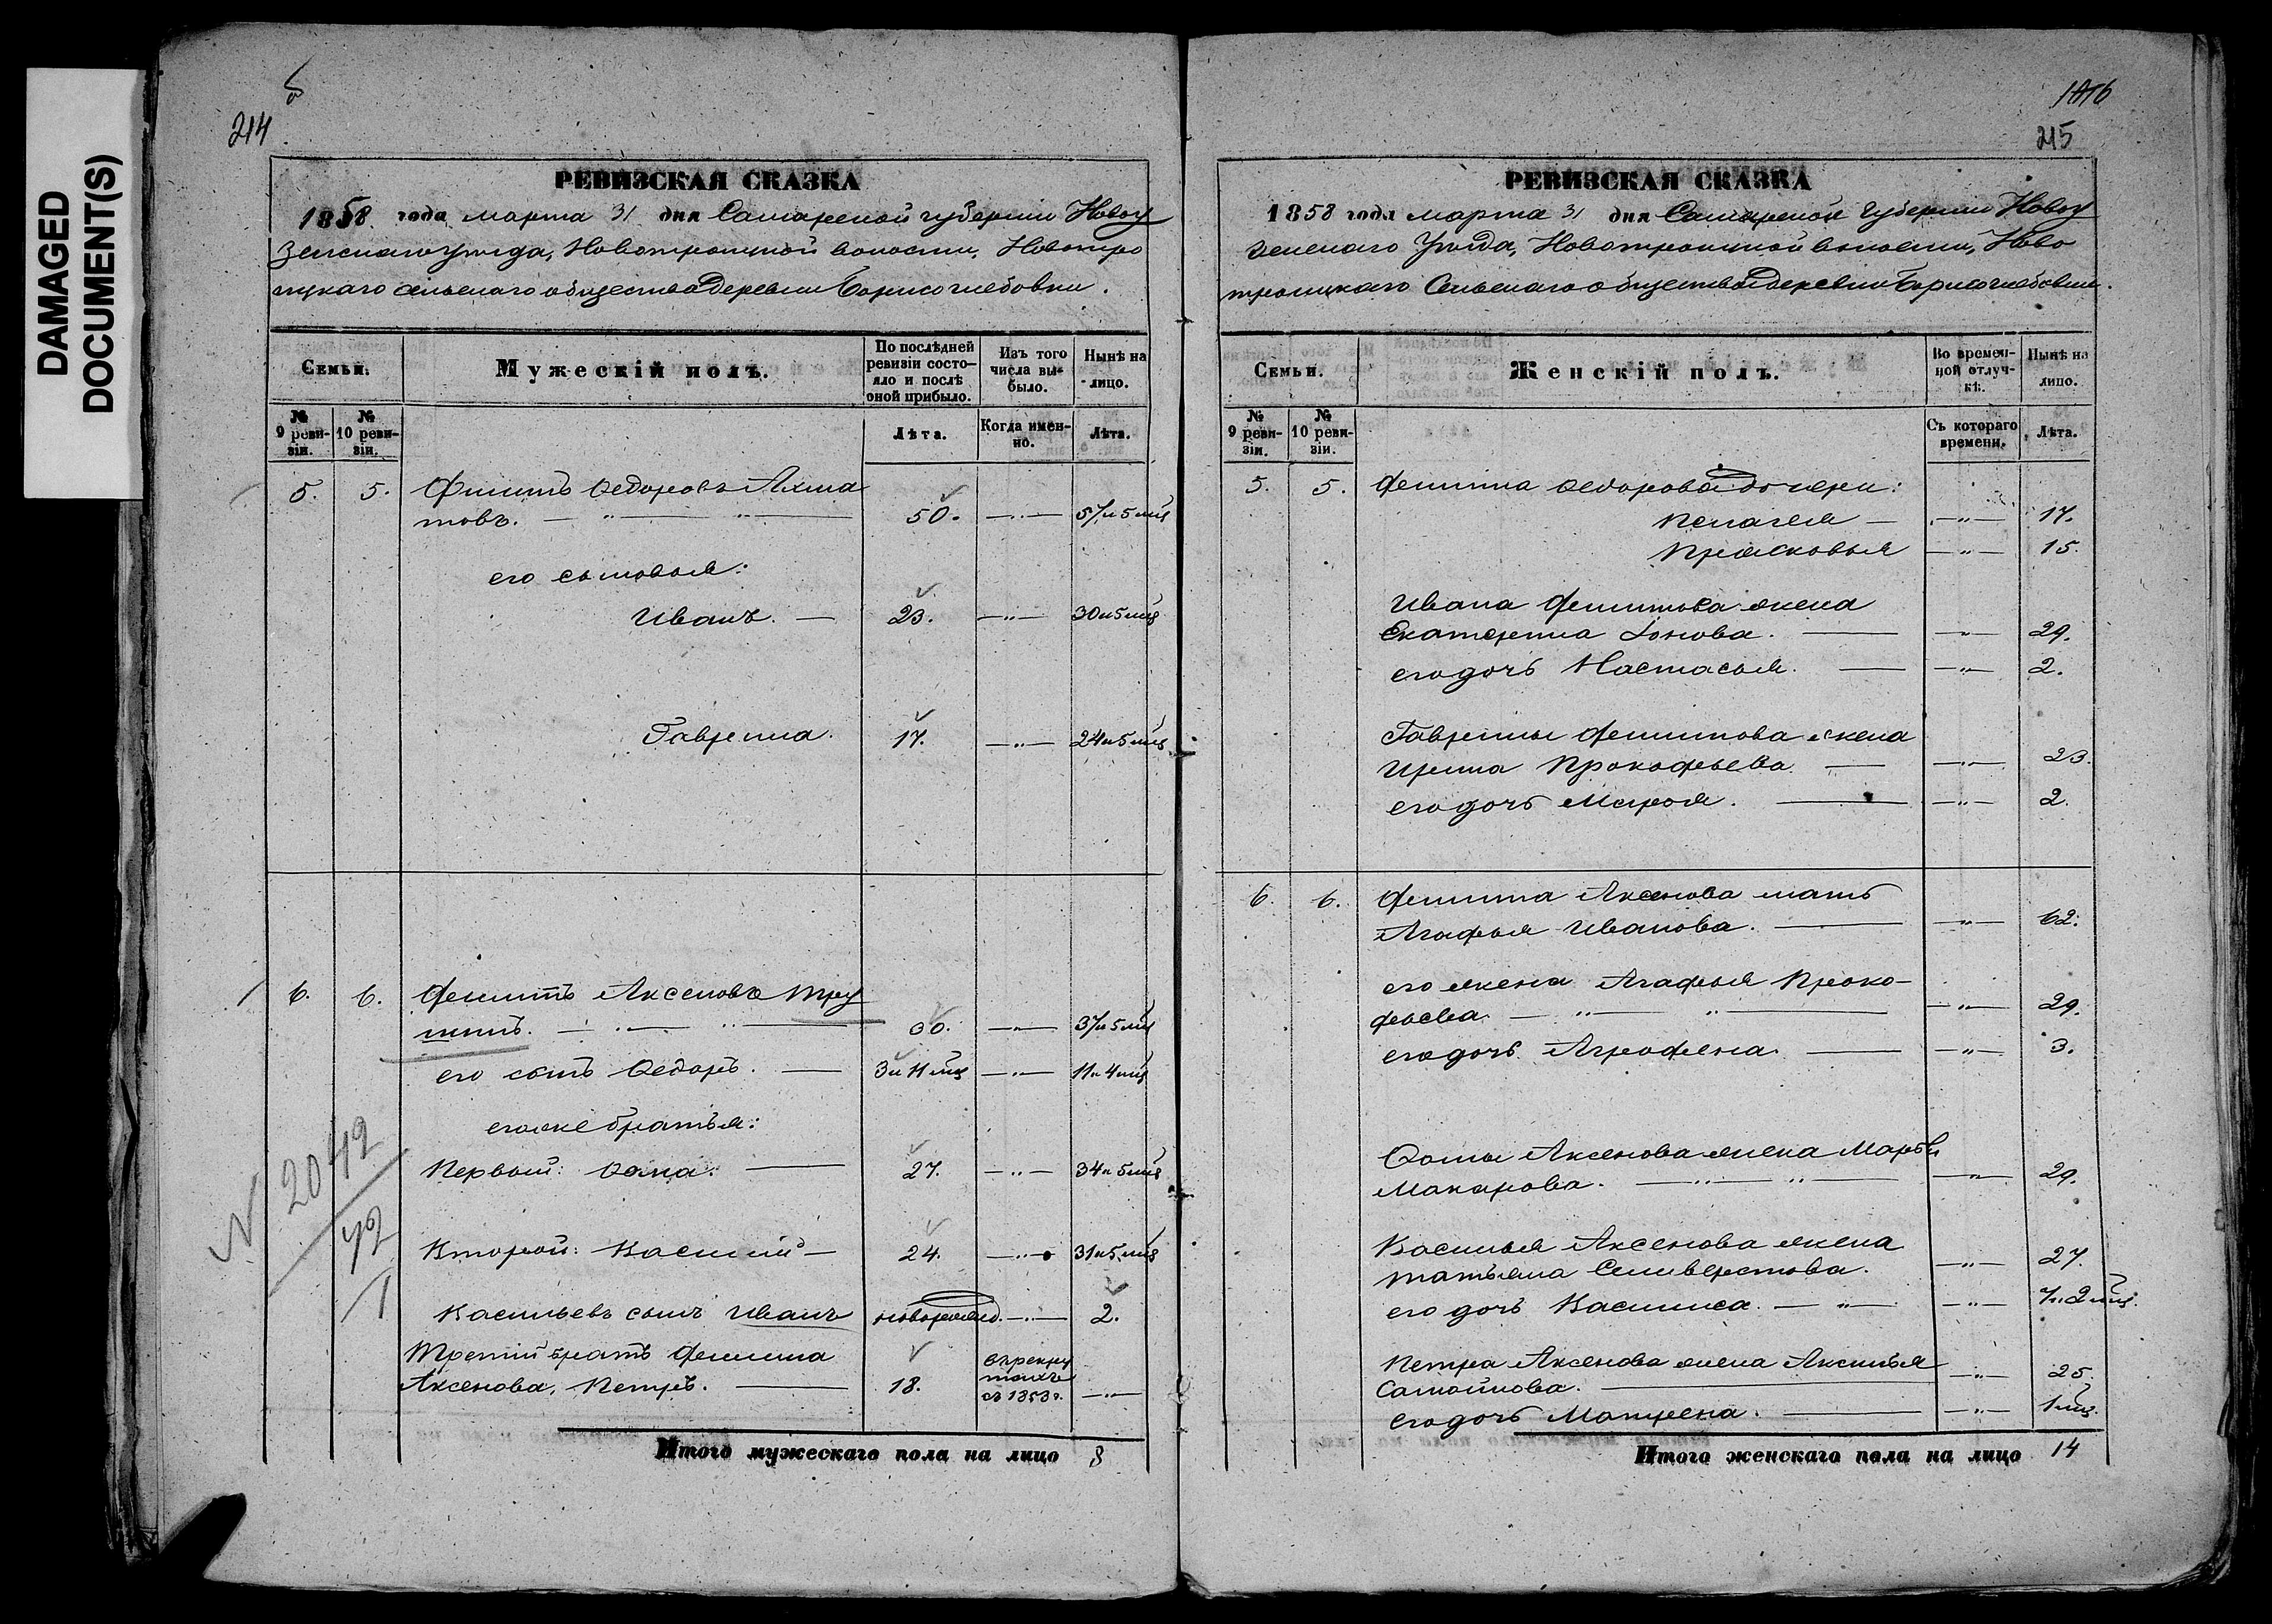 DAMAGED
DOCUMENT(S)
214
РЕВИЗСКАЯ СКАЗКА
1858 года марта 31 дня Самарской губернии Новоу
зенскаго уезда, Новотроицкой волости, Новотро
ицкаго сельскаго общества деревни Борисоглебовки.
Семьи.
Мужескій полъ.
По послѣдней ревизіи состояло и послѣ оной прибыло.
Изъ того числа выбыло.
Нынѣ на лицо.
№ 9 ревизіи.
№ 10 ревизіи.
Лѣта.
Когда именно.
Лѣта.
5. 5. Филипъ Ѳедоровъ Ахма
товъ. 50. 57 и 5 мц
его сыновья:
Иванъ. 23. 30 и 5 мц
Гаврила. 17. 24 и 5 мц
6. 6. Филипъ Аксеновъ Тру
нинъ. 30. 37 и 5 мц
его сынъ Ѳедоръ. 3 и 11 мц 11 и 4 мц
его же братья:
Первый: Ѳома. 27. 34 и 5 мц
Второй: Василий 24. 31 и 5 мц
Васильевъ сынъ Иванъ новорожд. 2.
Третий братъ Филипа
Аксенова, Петръ. 18. въ рекру
тахъ
съ 1853 г.
N 2042
42
1
Итого мужескаго пола на лицо 8
215
РЕВИЗСКАЯ СКАЗКА
1858 года марта 31 дня Самарской губернии Новоу
зенскаго Уезда, Новотроицкой волости, Ново
троицкаго Сельскаго общества деревни Борисоглебовки.
Семьи.
Женскій полъ.
Во временной отлучкѣ.
Нынѣ на лицо.
№ 9 ревизіи.
№ 10 ревизіи.
Съ котораго времени.
Лѣта.
5. 5. Филиппа Ѳедорова дочери:
Пелагея 17.
Прасковья 15.
Ивана Филиппова жена
Екатерина Іонова. 29.
его дочь Настасья. 2.
Гаврилы Филиппова жена
Ирина Прокофьева 23.
его дочь Марья. 2.
6. 6. Филиппа Аксенова мать
Агафья Иванова. 62.
его жена Агафья Проко-
фьева. 29.
его дочь Агрофена. 3.
Ѳомы Аксенова жена Марья
Макарова. 29.
Василья Аксенова жена
Татьяна Селиверстова. 27.
его дочь Василиса. 7 и 2 мц.
Петра Аксенова жена Аксинья
Самойлова. 25.
его дочь Матрена. 1 мц.
Итого женскаго пола на лицо 14